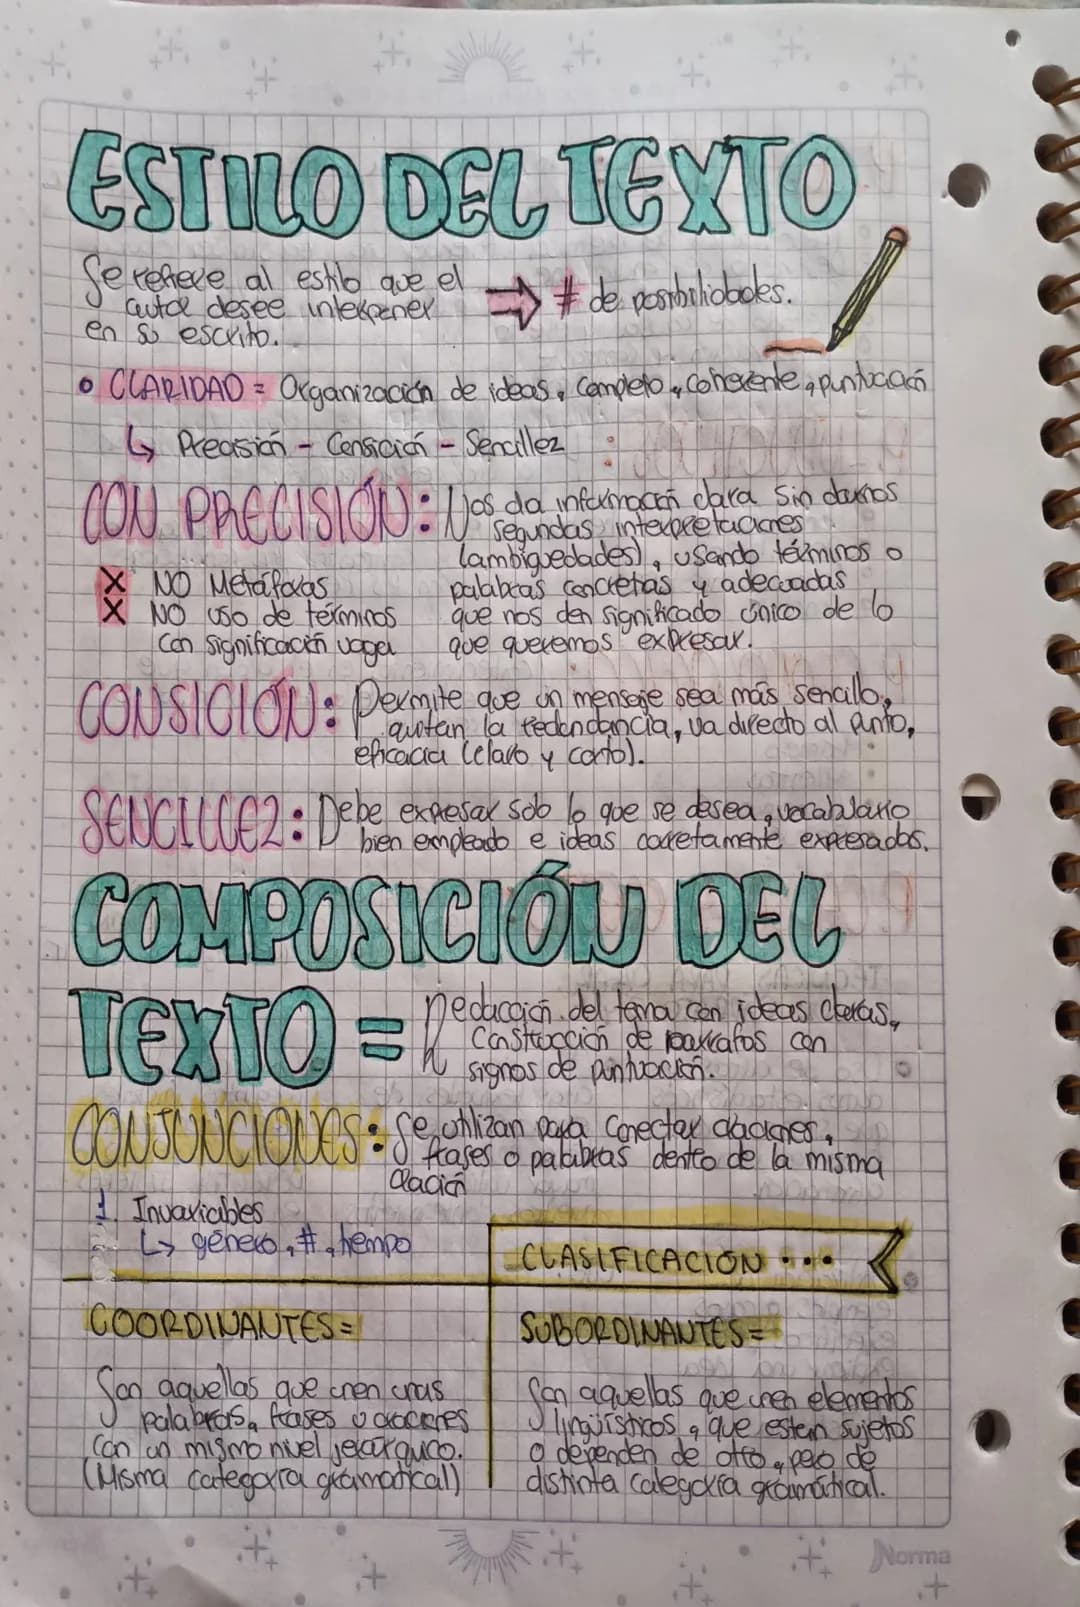 ESTILO DEL TEXTO
Se refiere al estilo que el
autor desee interponer
en su escrito.
⇒ # de posibilidades.
• CLARIDAD = Organización de ideas, completo, coherente, puntuación
↳ Precisión - Consición - Sencillez
CON PRECISIÓN: Nos da información clara sin darnos
segundas interpretaciones
(ambiguedades), usando términos o
palabras concretas y adecuadas
que nos den significado único de lo
que queremos expresar.
X NO Metáforas
X NO uso de términos
con significación vaga
CONSICIÓN: Permite que un mensaje sea más sencillo,
quitan la redondancia, va directo al punto,
eficacia (claro y corto).
SENCILLEZ: Debe expresar solo lo que se desea, vocabulario
bien empleado e ideas corretamente expresadas.
COMPOSICIÓN DEL
TEXTO = Redacción del tema con ideas claras,
Construcción de parrafos con
signos de puntuación.
CONJUNCIONES: Se utilizan para conectar oraciones,
frases o palabras dento de la misma
oración
1. Invariables
↳ género, #, tiempo
CLASIFICACIÓN ...
COORDINANTES=
Son aquellas que unen unas
palabras, frases u oraciones
con un mismo nivel jerárquico.
(Misma categoria gramatical)
SUBORDINANTES=
Son aquellas que unen elementos
lingüísticos, que esten sujetos
o dependen de otro, pero de
distinta categoría gramátical.
Norma